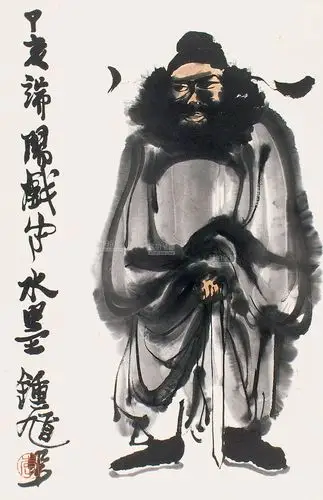 甲亥端陽戲中水墨鍾馗